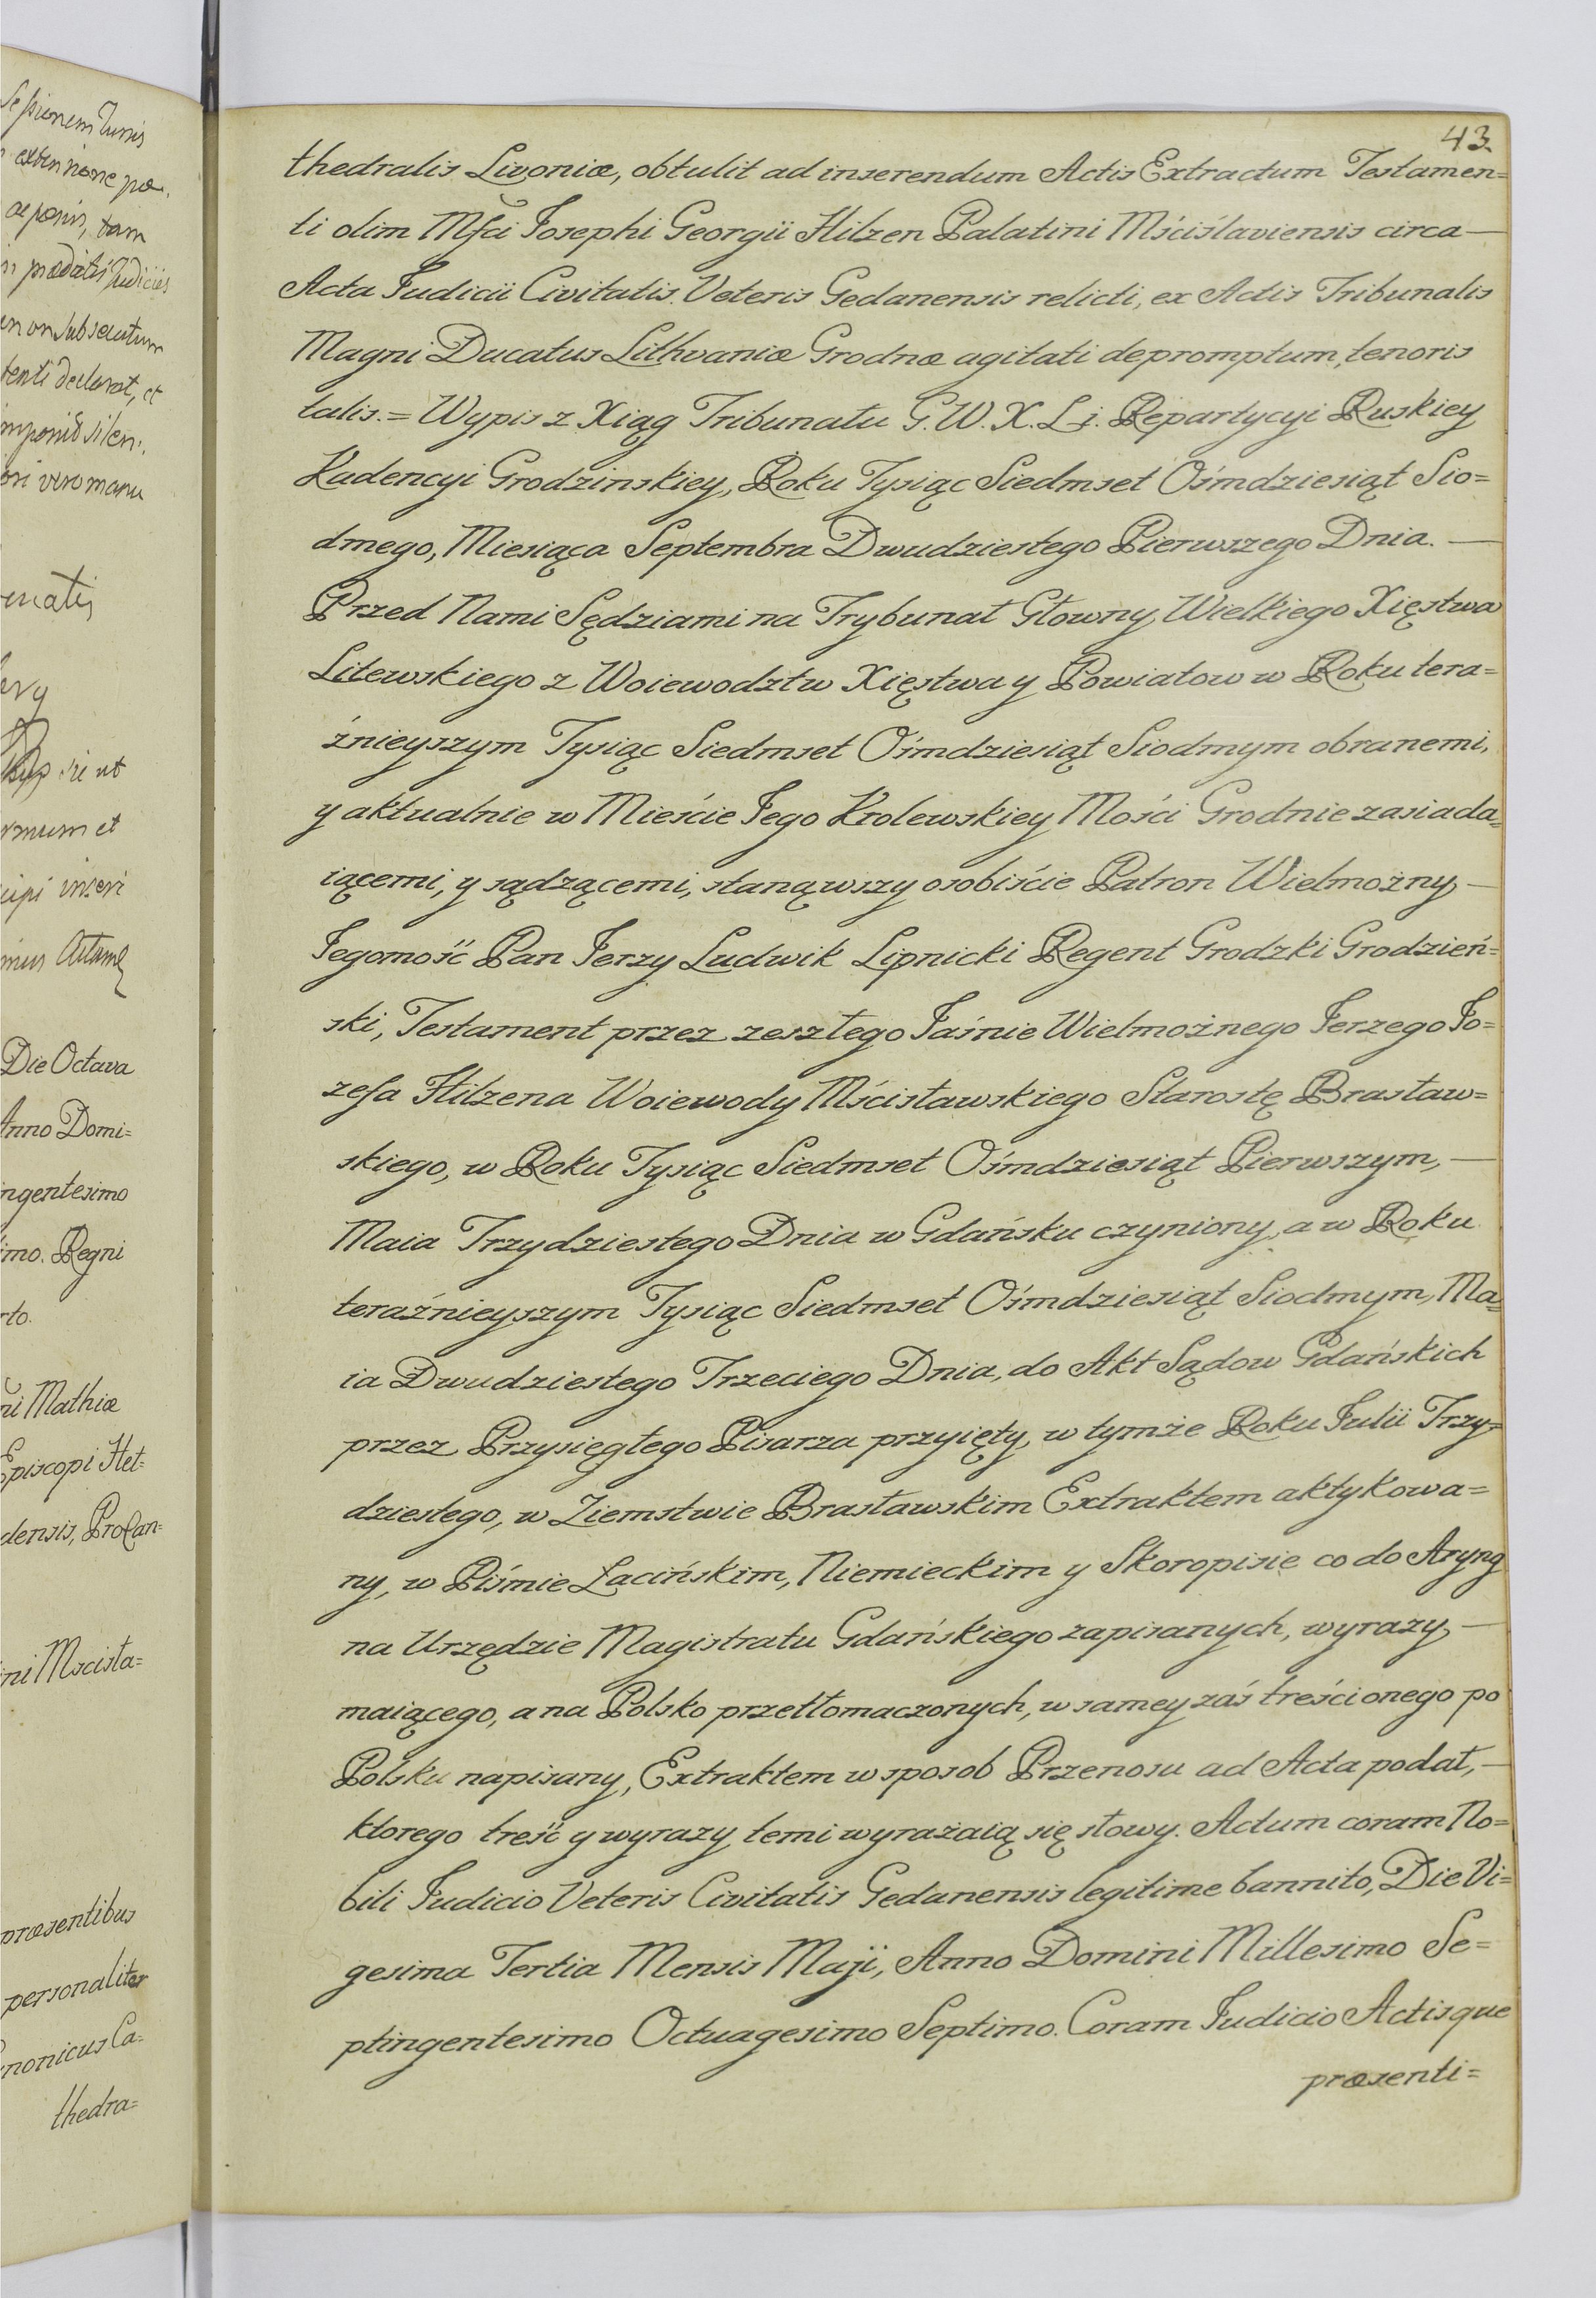 sessionem Iuris
extensione
tam
Iudiciis
non subsecutum
declarat, et
imponit silen:
vero manu
sie ut
et
inseri
Die Octava
Anno Domi=
ingentesimo
imo. Regni
rto.
ni Mathiæ
Episcopi Het=
densis, Procan=
ini Mscisla=
præsentibus
personaliter
nonicus Ca=
thedra=
43.
thedralis Livoniæ, obtulit ad inserendum Actis Extractum Testamen=
ti olim Mfci Josephi Georgii Hilzen Palatini Mściślaviensis circa —
Acta Judicii Civitatis Veteris Gedanensis relicti, ex Actis Tribunalis
Magni Ducatus Lithvaniæ Grodnæ agitati depromptum, tenoris
talis. = Wypis z Xiąg Tribunału G. W. X. Li. Repartycyi Ruskiey
Kadencyi Grodzinskiey, Roku Tysiąc Siedmset Ośmdziesiąt Sio=
dmego, Miesiąca Septembra Dwudziestego Pierwszego Dnia. —
Przed Nami Sędziami na Trybunał Głowny Wielkiego Xięstwa
Litewskiego z Woiewodztw Xięstwa y Powiatow w Roku tera=
źnieyszym Tysiąc Siedmset Ośmdziesiąt Siodmym obranemi,
y aktualnie w Mieście Jego Krolewskiey Mości Grodnie zasiada=
iącemi, y sądzącemi, stanąwszy osobiście Patron Wielmożny —
Jegomość Pan Jerzy Ludwik Lipnicki Regent Grodzki Grodzień=
ski, Testament przez zeszłego Jaśnie Wielmożnego Jerzego Jo=
zefa Hilzena Woiewody Mścisławskiego Starostę Brasław=
skiego, w Roku Tysiąc Siedmset Ośmdziesiąt Pierwszym, —
Maia Trzydziestego Dnia w Gdańsku czyniony, a w Roku
teraźnieyszym Tysiąc Siedmset Ośmdziesiąt Siodmym, Ma=
ia Dwudziestego Trzeciego Dnia, do Akt Sądow Gdańskich
przez Przysięgłego Pisarza przyięty, w tymże Roku Julii Trzy=
dziestego, w Ziemstwie Brasławskim Extraktem aktykowa=
ny, w Piśmie Łacińskim, Niemieckim y Skoropisie co do Aryng
na Urzędzie Magistratu Gdańskiego zapisanych, wyrazy —
maiącego, a na Polsko przetłomaczonych, w samey zaś treści onego po
Polsku napisany, Extraktem w sposob Przenosu ad Acta podał, —
ktorego treść y wyrazy temi wyrażaią się słowy. Actum coram No=
bili Judicio Veteris Civitatis Gedanensis legitime bannito, Die Vi=
gesima Tertia Mensis Maji, Anno Domini Millesimo Se=
ptingentesimo Octuagesimo Septimo. Coram Judicio Actisque
præsenti=